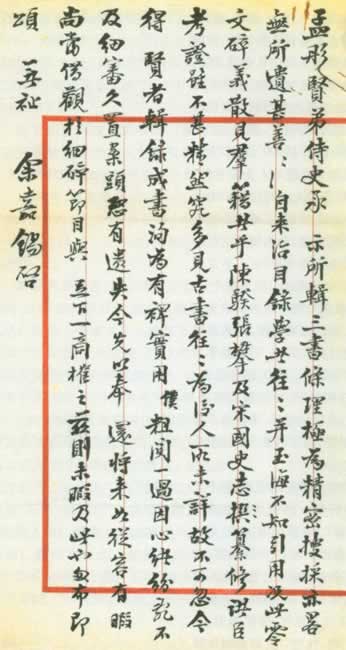 孟彤賢弟侍史承 示所輯三書條理極為精密搜採亦畧
無所遺甚善〻自来治目錄學者往〻并玉海不知引用況此零
文碎義散見羣籍者乎陳騤張攀及宋國史志撰纂修諸臣
考證雖不甚精然究多見古書往〻為後人所未詳故不可忽今
得 賢者輯録成書洵為有裨實用僕粗閱一過因心緒紛亂不
及細審久置案頭恐有遺失今先以奉 還將来如從容有暇
尚當借觀於細碎節目與 足下一商榷之茲則未暇及此也匆布即
頌 箸祉 余嘉錫啓